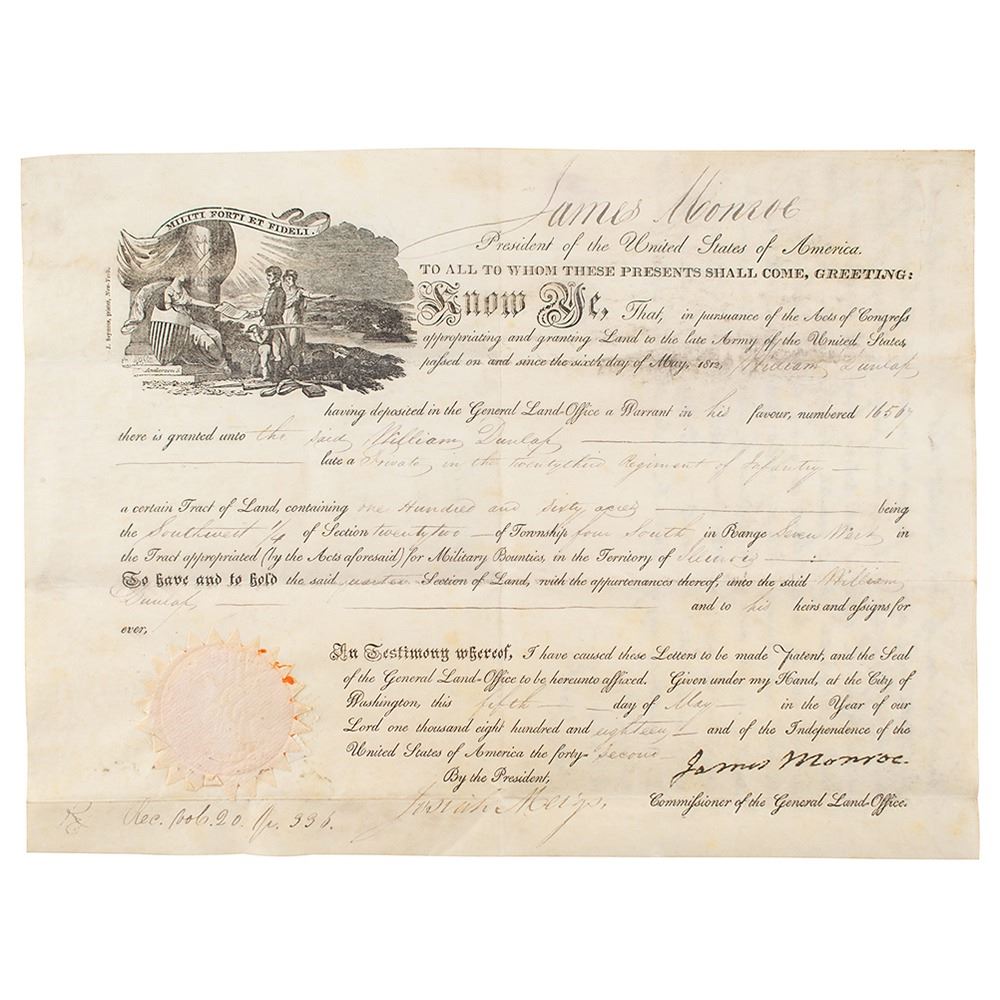 James Monroe
President of the United States of America.
TO ALL TO WHOM THESE PRESENTS SHALL COME, GREETING:
MILITI FORTI ET FIDELI.
J. Seymour, printer, New-York.
Anderson S
Know Ye, That, in pursuance of the Acts of Congress
appropriating and granting Land to the late Army of the United States,
passed on and since the sixth day of May, 1812, William Dunlap
having deposited in the General Land-Office a Warrant in his favour, numbered 16567
there is granted unto the said William Dunlap
late a Private in the twentythird Regiment of Infantry
a certain Tract of Land, containing one Hundred and Sixty acres being
the Southwest 1/4 of Section twentytwo of Township four South in Range Seven West in
the Tract appropriated (by the Acts aforesaid) for Military Bounties, in the Territory of Illinois :
To have and to hold the said quarter Section of Land, with the appurtenances thereof, unto the said William
Dunlap, and to his heirs and assigns for
ever,
In Testimony whereof, I have caused these Letters to be made Patent, and the Seal
of the General Land-Office to be hereunto affixed. Given under my Hand, at the City of
Washington, this fifth day of May in the Year of our
Lord one thousand eight hundred and eighteen and of the Independence of the
United States of America the forty-Second
James Monroe.
By the President,
Josiah Meigs,
Commissioner of the General Land-Office.
Rec. Vol. 20. Pa. 336.